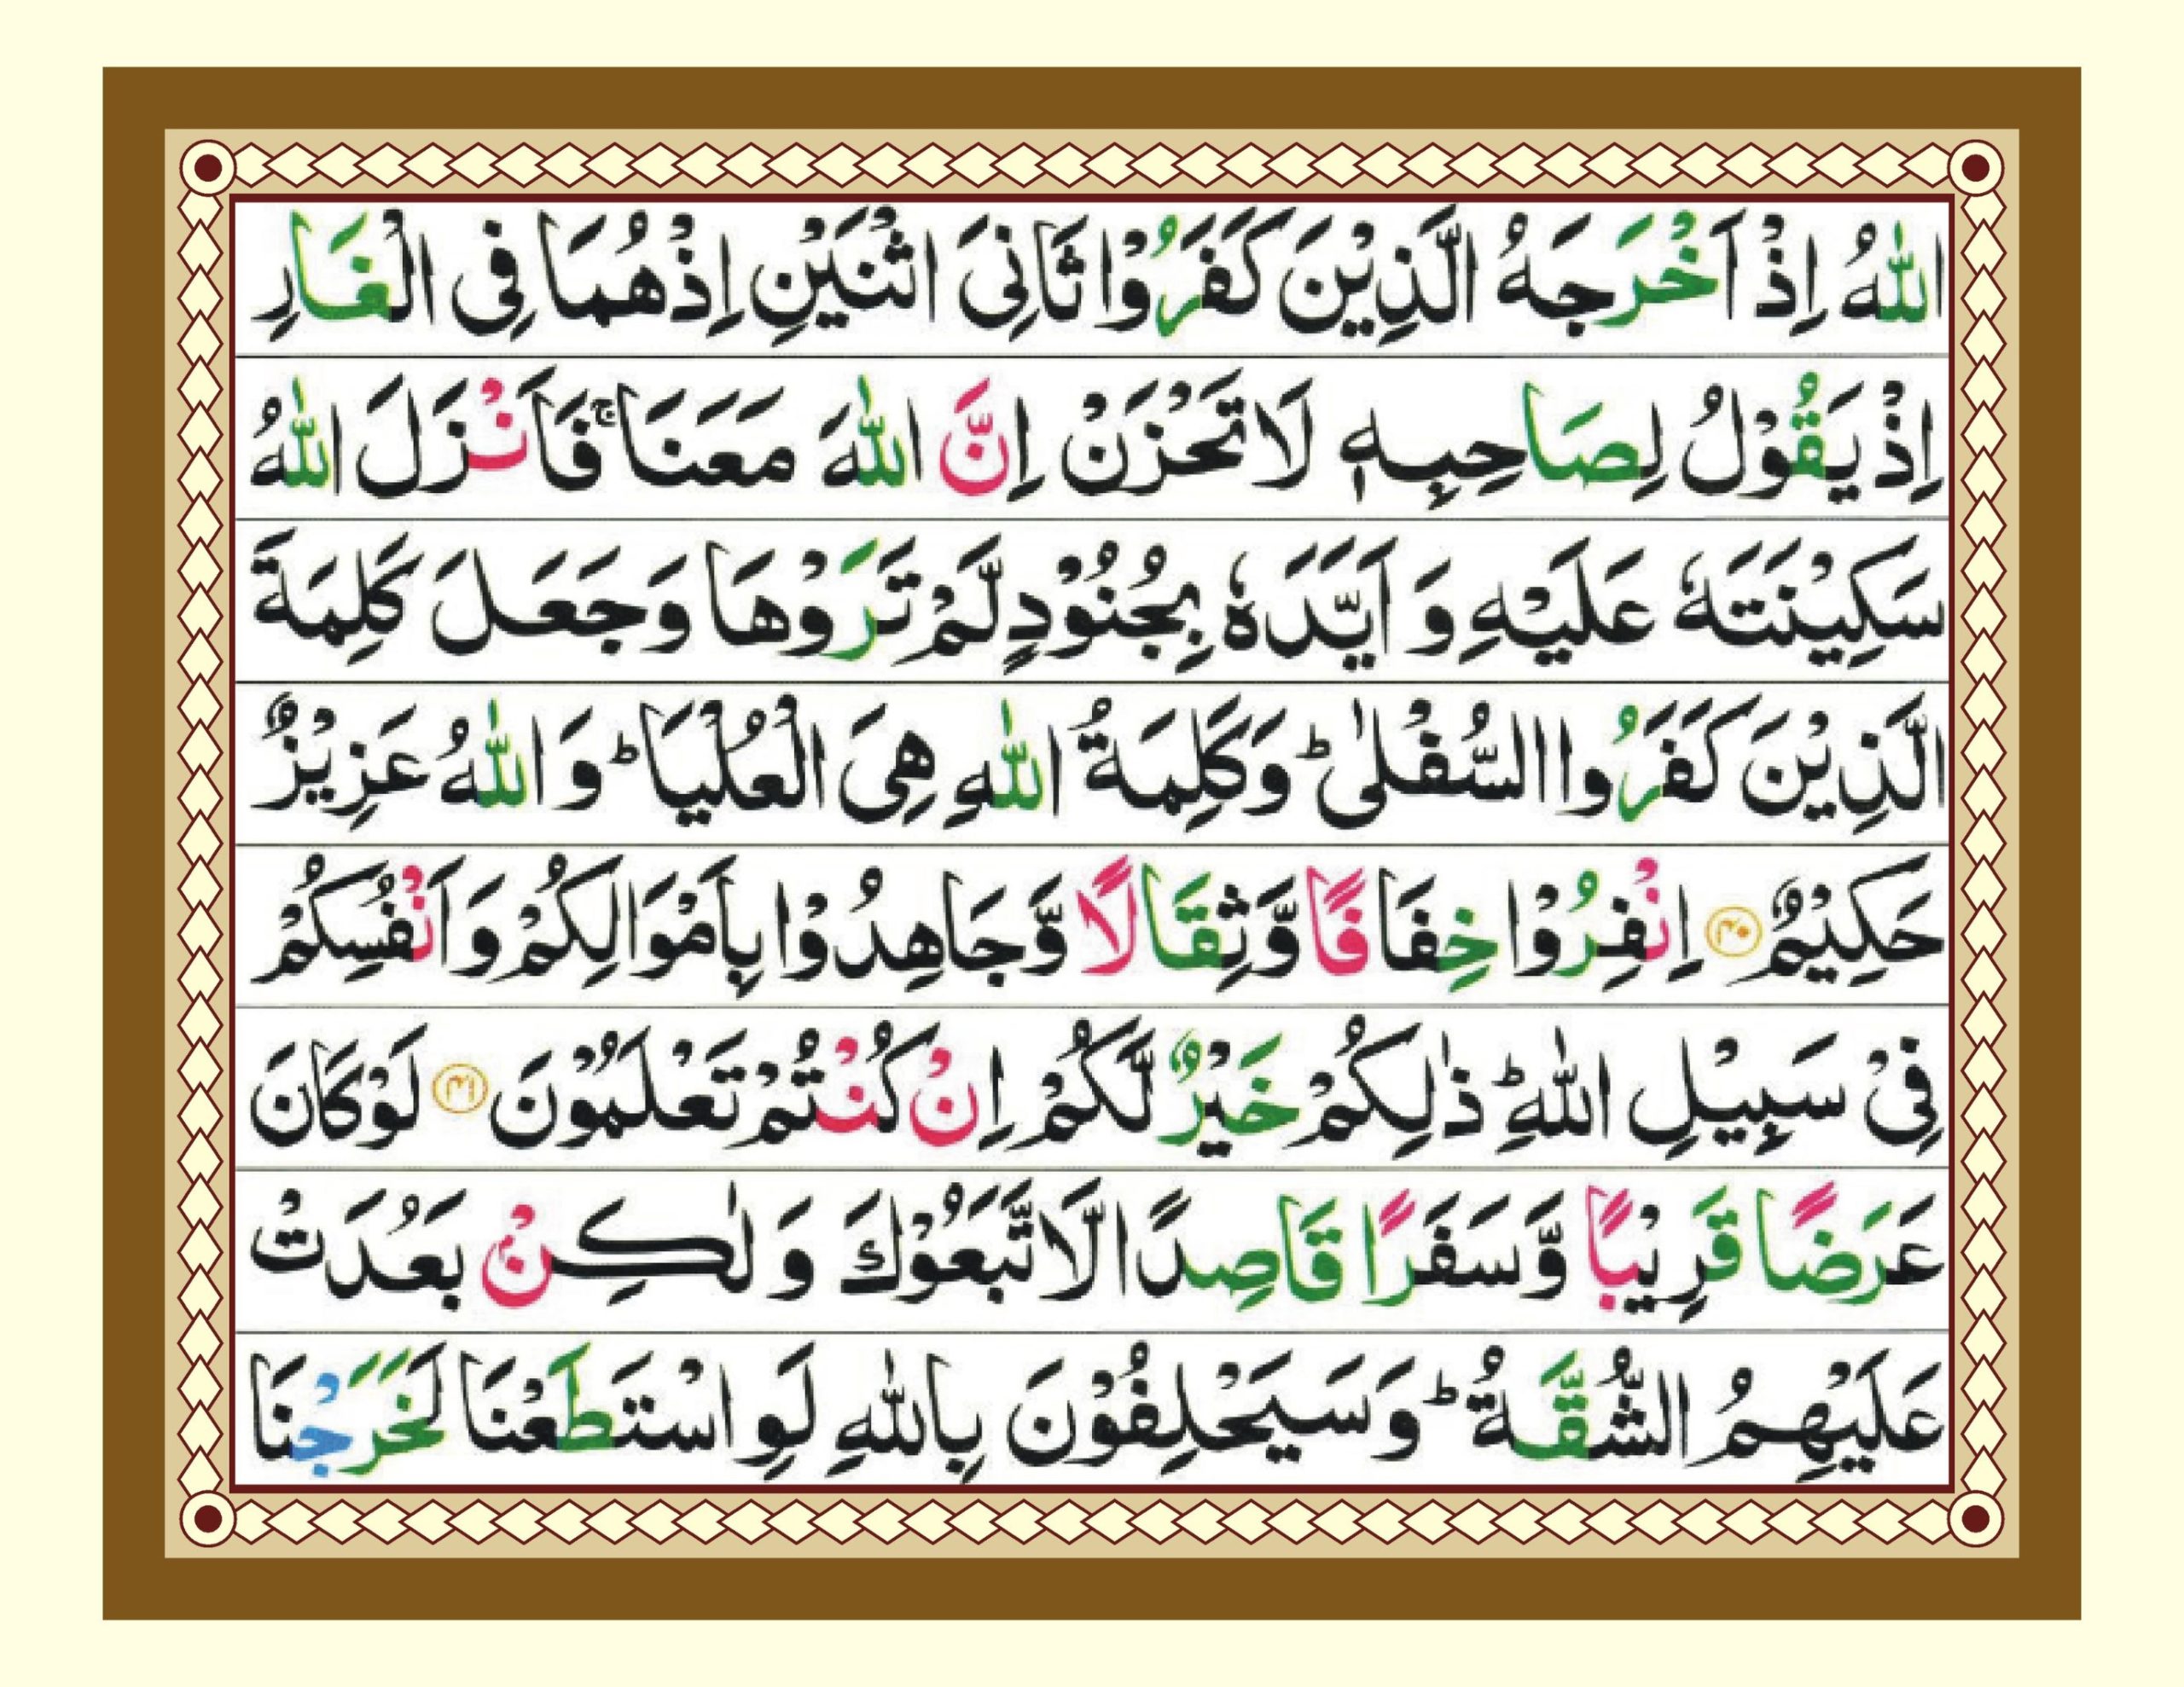 اللّٰهُ اِذْ اَخْرَجَهُ الَّذِيْنَ كَفَرُوْا ثَانِيَ اثْنَيْنِ اِذْهُمَا فِى الْغَارِ
اِذْ يَقُوْلُ لِصَاحِبِهٖ لَا تَحْزَنْ اِنَّ اللّٰهَ مَعَنَا ۚ فَاَنْزَلَ اللّٰهُ
سَكِيْنَتَهٗ عَلَيْهِ وَ اَيَّدَهٗ بِجُنُوْدٍ لَّمْ تَرَوْهَا وَجَعَلَ كَلِمَةَ
الَّذِيْنَ كَفَرُوا السُّفْلٰى ؕ وَكَلِمَةُ اللّٰهِ هِىَ الْعُلْيَا ؕ وَ اللّٰهُ عَزِيْزٌ
حَكِيْمٌ ۝۴۰ اِنْفِرُوْا خِفَافًا وَّثِقَالًا وَّجَاهِدُوْا بِاَمْوَالِكُمْ وَاَنْفُسِكُمْ
فِىْ سَبِيْلِ اللّٰهِ ؕ ذٰلِكُمْ خَيْرٌ لَّكُمْ اِنْ كُنْتُمْ تَعْلَمُوْنَ ۝۴۱ لَوْ كَانَ
عَرَضًا قَرِيْبًا وَّسَفَرًا قَاصِدًا لَّا تَّبَعُوْكَ وَ لٰكِنْۢ بَعُدَتْ
عَلَيْهِمُ الشُّقَّةُ ؕ وَسَيَحْلِفُوْنَ بِاللّٰهِ لَوِ اسْتَطَعْنَا لَخَرَجْنَا